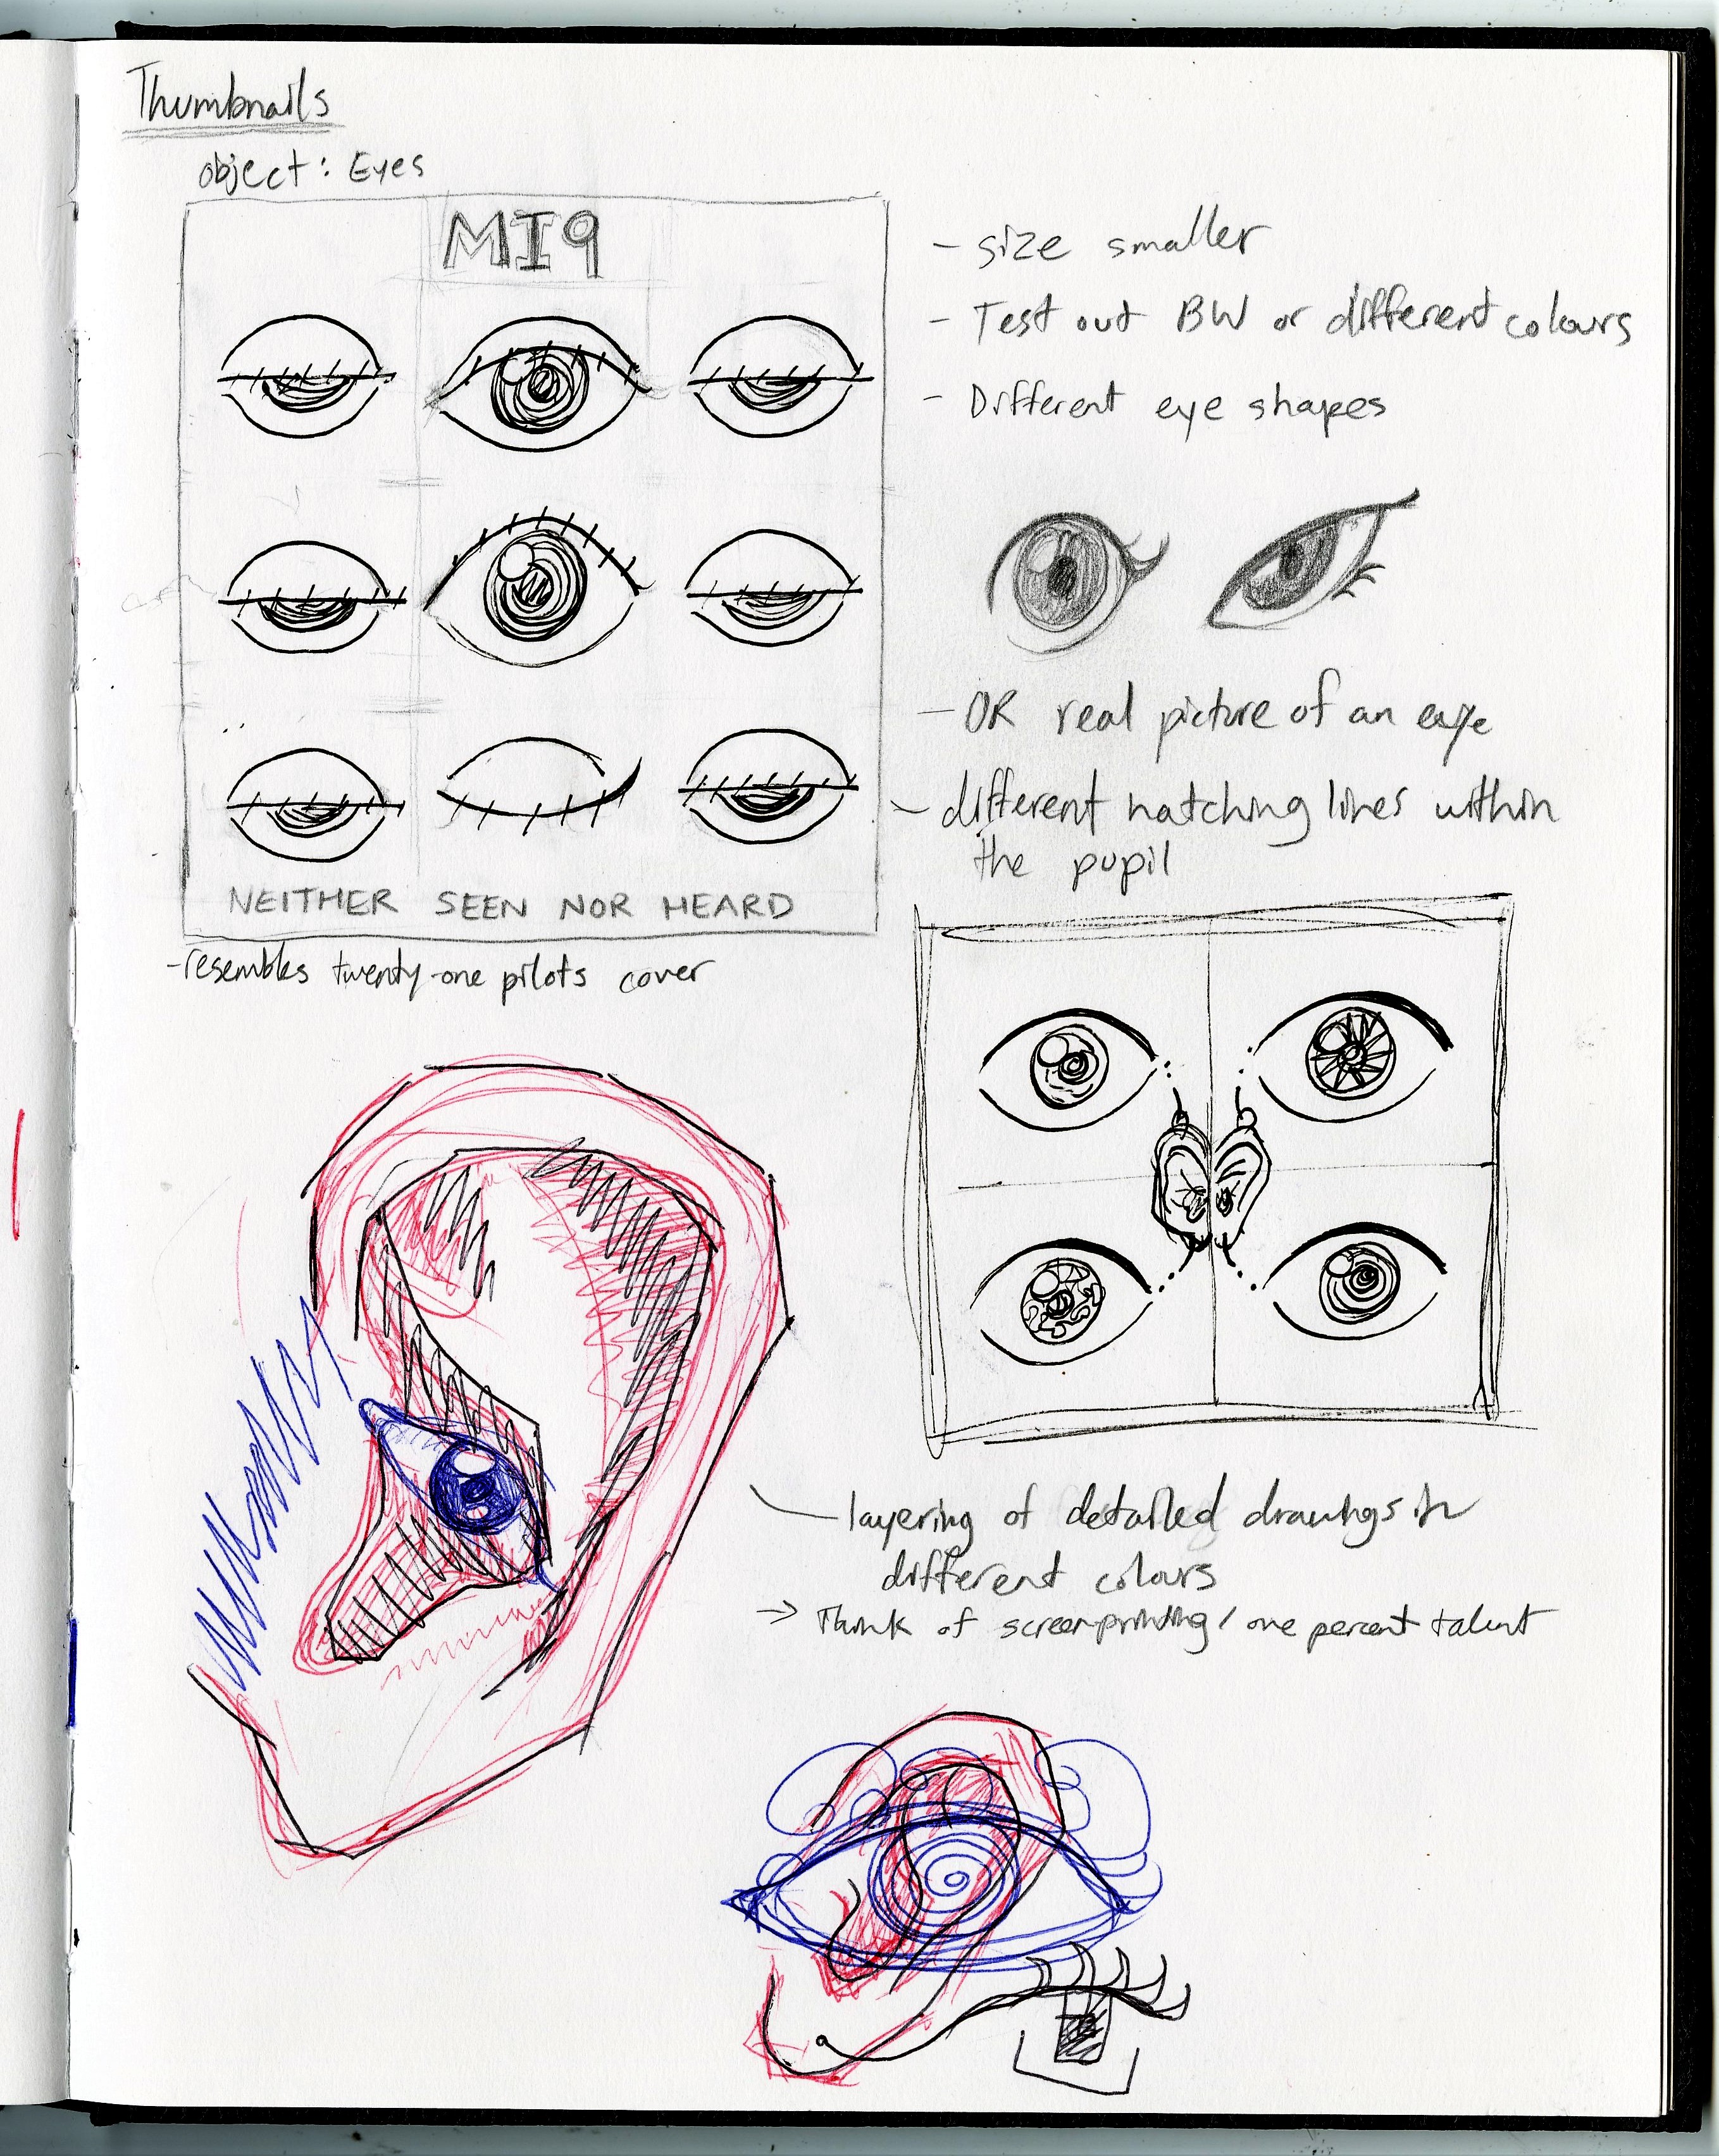 Thumbnails
object: Eyes
MI9
NEITHER SEEN NOR HEARD
-resembles twenty-one pilots cover
- size smaller
- Test out BW or different colours
- Different eye shapes
- OR real picture of an eye
- different hatching lines within
the pupil
- layering of detailed drawings in
different colours
→ Think of screenprinting/ one percent talent